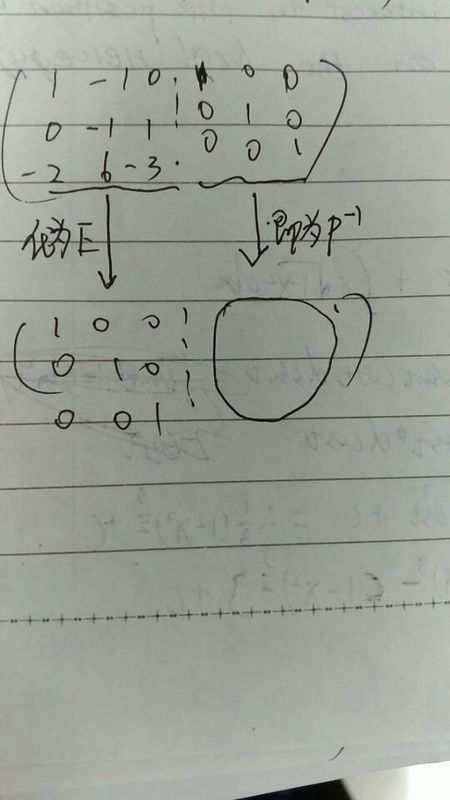 1 -1 0 1 0 0
0 -1 1 0 1 0
-2 6 -3 0 0 1
化为E 即为P⁻¹
1 0 0
0 1 0
0 0 1